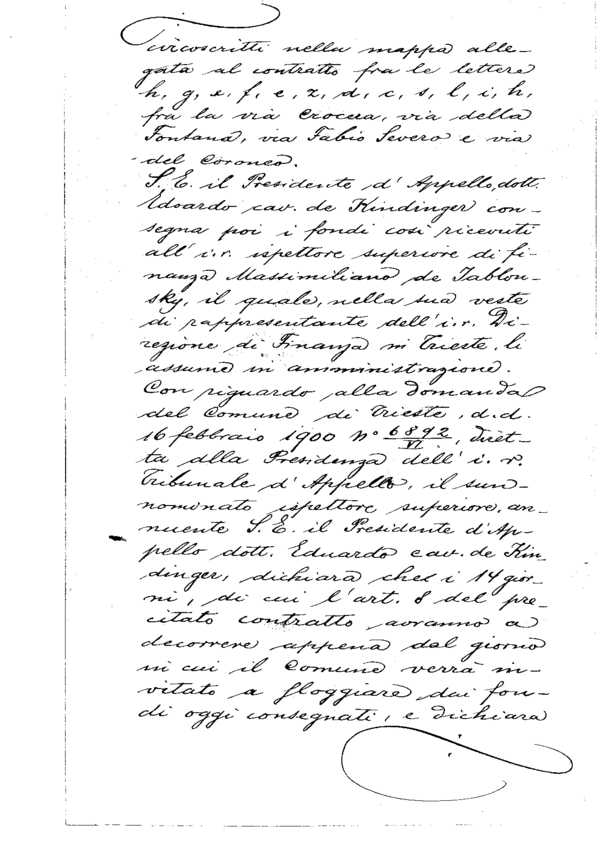 circoscritti nella mappa alle-
gata al contratto fra le lettere
h, g, x, f, e, z, d, c, s, l, i, h,
fra la via Crocera, via della
Fontana, via Fabio Severo e via
del Coroneo.
S. E. il Presidente d' Appello, dott.
Edoardo cav. de Kindinger con-
segna poi i fondi così ricevuti
all' i.r. ispettore superiore di fi-
nanza Massimiliano de Jablon-
sky, il quale, nella sua veste
di rappresentante dell' i.r. Di-
rezione di Finanza in Trieste, li
assume in amministrazione.
Con riguardo alla domanda
del Comune di Trieste, d.d.
16 febbraio 1900 No 6892/VI, diret-
ta alla Presidenza dell' i. r.
Tribunale d' Appello, il sun-
nominato ispettore superiore, an-
nuente S. E. il Presidente d' Ap-
pello dott. Eduardo cav. de Kin-
dinger, dichiara che i 14 gior-
ni, di cui l' art. 8 del pre-
citato contratto avranno a
decorrere appena dal giorno
in cui il Comune verrà in-
vitato a sloggiare dai fon-
di oggi consegnati, e dichiara